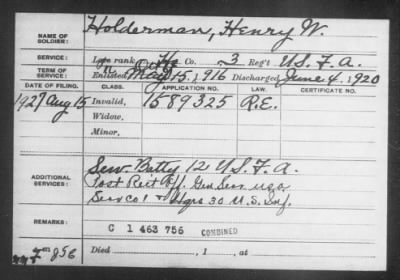 NAME OF SOLDIER: Holderman, Henry W.
SERVICE: Late rank Co. 3 Reg't U.S.F.A.
TERM OF SERVICE: Enlisted May 15, 1916 Discharged June 4, 1920
DATE OF FILING. CLASS. APPLICATION NO. LAW. CERTIFICATE NO.
1927 Aug 15 Invalid, 1589325 R.E.
Widow,
Minor,
ADDITIONAL SERVICES: Serv. Batty 12 U.S.F.A.
Post Gen Serv
Serv Co 1 & Hqrs 30 U.S. Inf.
REMARKS: C 1 463 756 COMBINED
Died , 1 , at